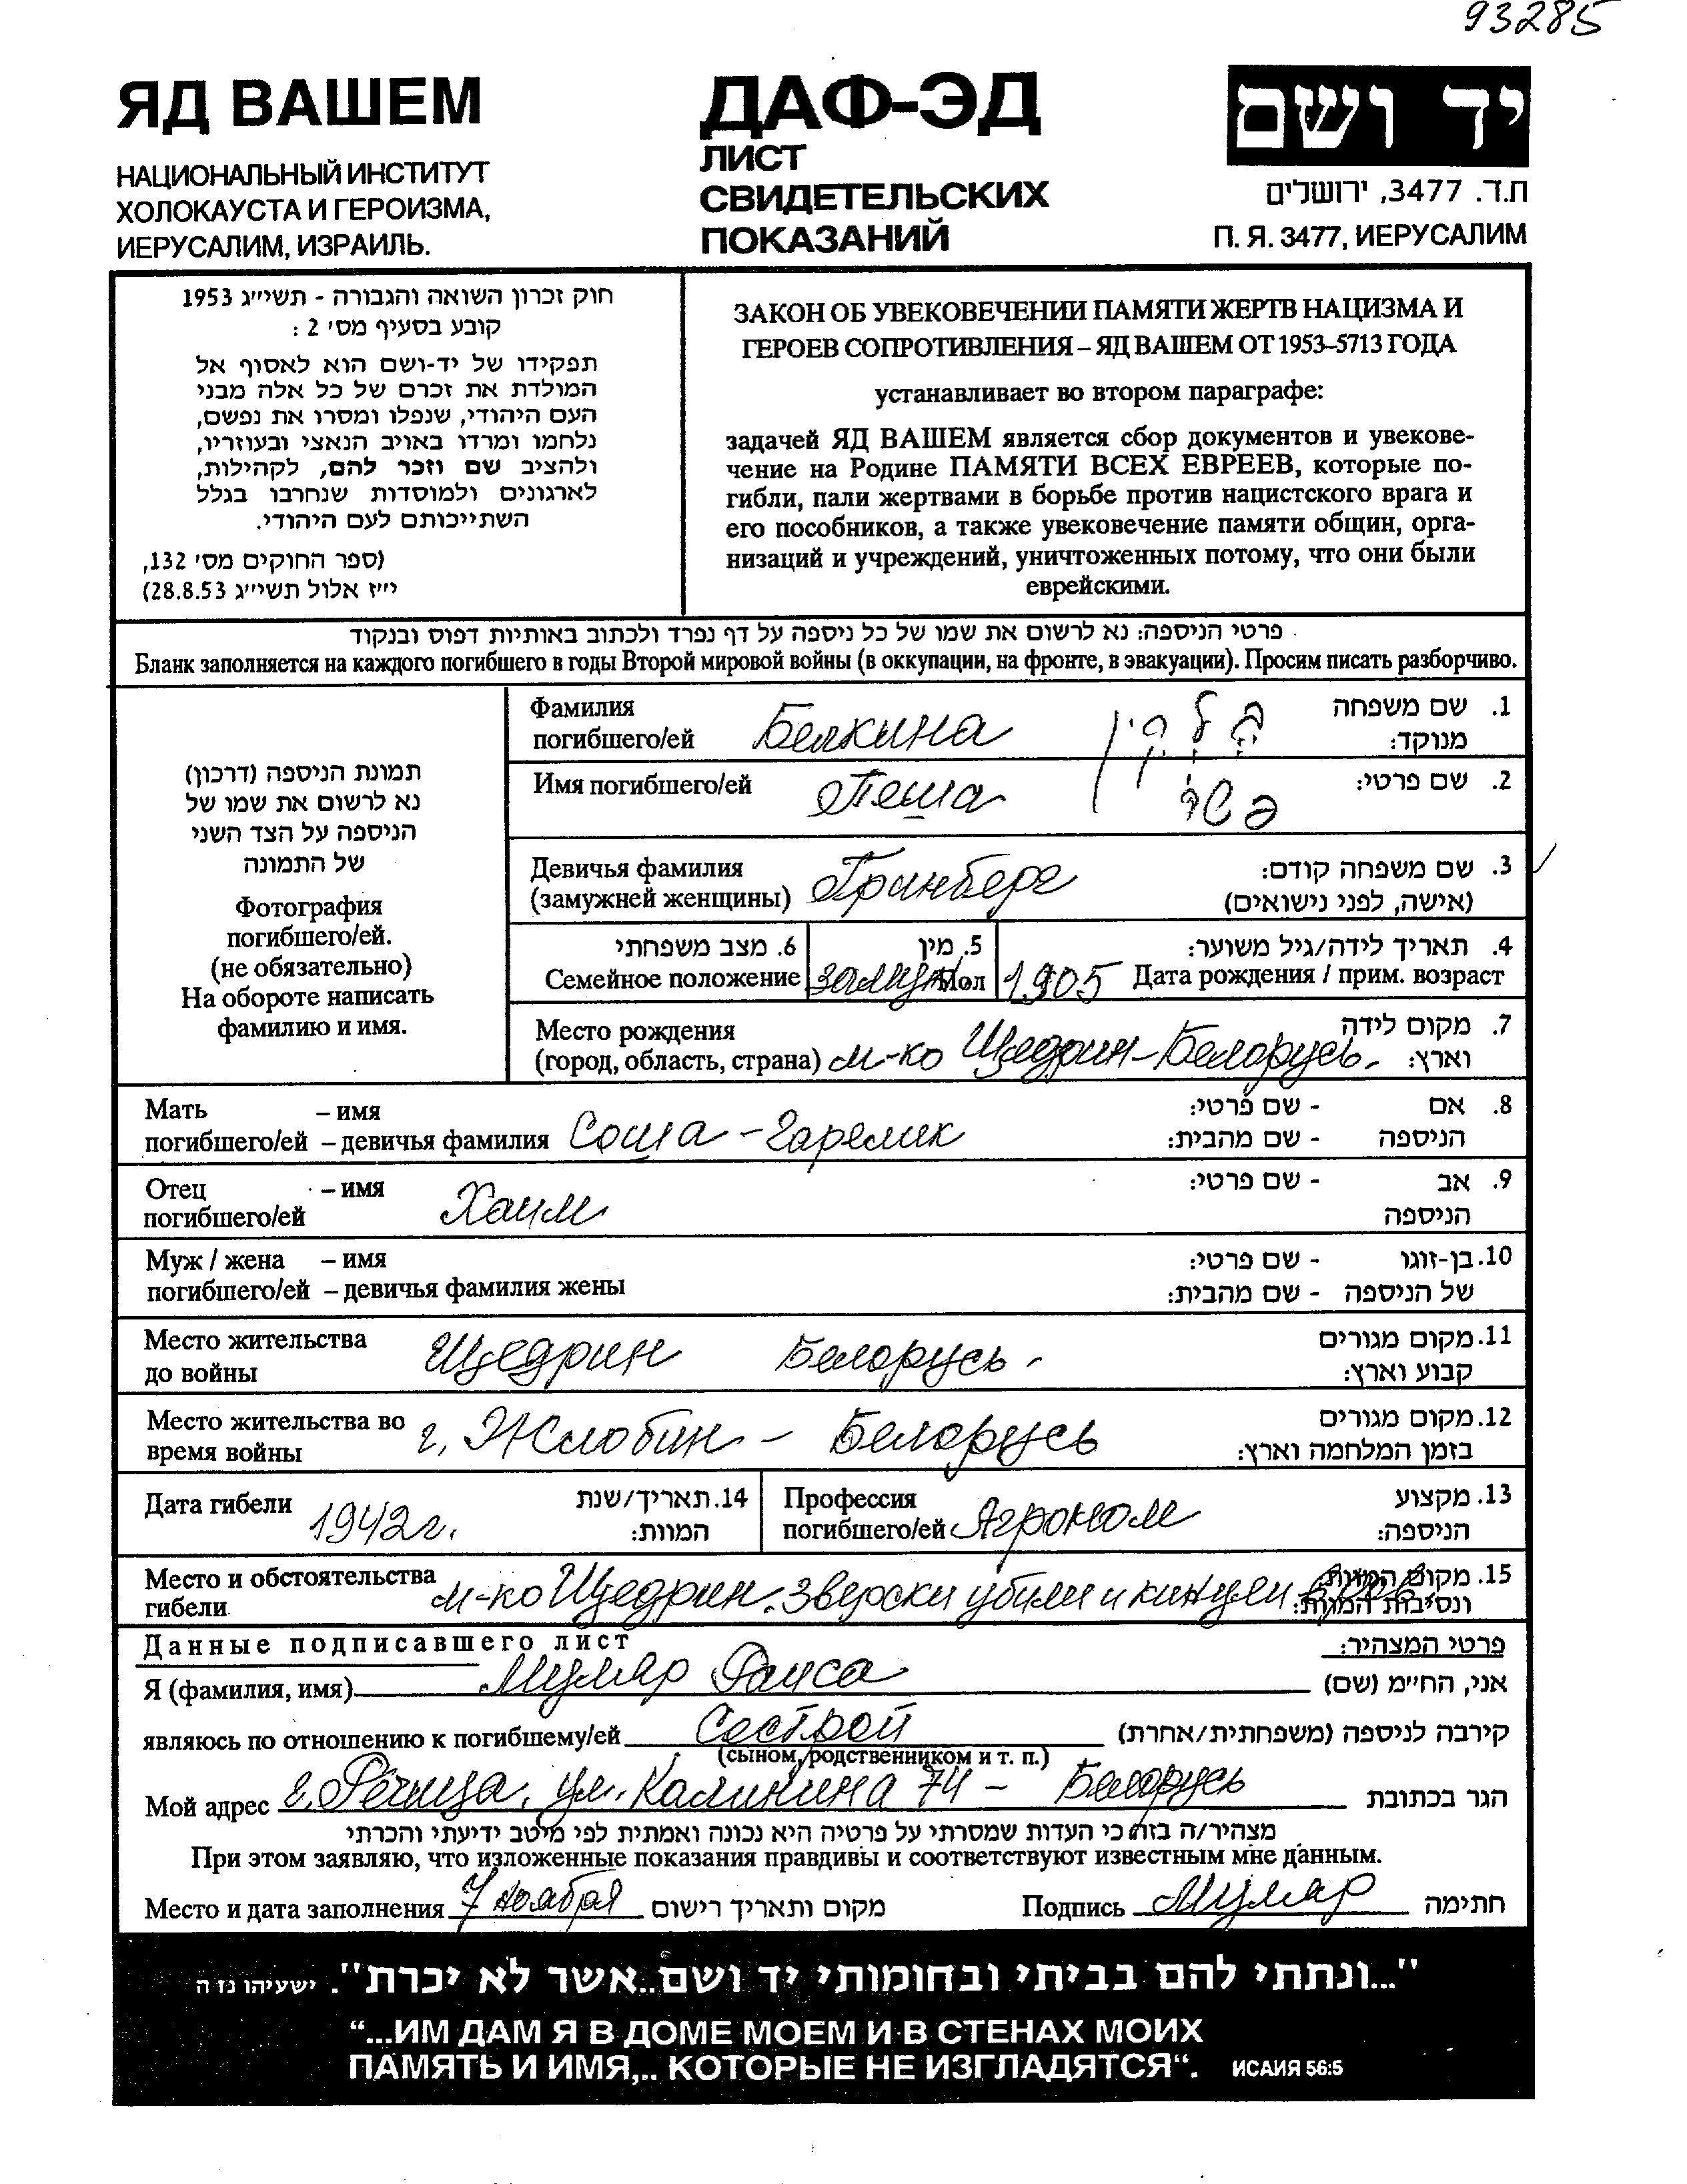 93285
ЯД ВАШЕМ
НАЦИОНАЛЬНЫЙ ИНСТИТУТ
ХОЛОКАУСТА И ГЕРОИЗМА,
ИЕРУСАЛИМ, ИЗРАИЛЬ.
ДАФ-ЭД
ЛИСТ
СВИДЕТЕЛЬСКИХ
ПОКАЗАНИЙ
יד ושם
ת.ד. 3477, ירושלים
П. Я. 3477, ИЕРУСАЛИМ
חוק זכרון השואה והגבורה - תשי״ג 1953
קובע בסעיף מס׳ 2 :
תפקידו של יד-ושם הוא לאסוף אל
המולדת את זכרם של כל אלה מבני
העם היהודי, שנפלו ומסרו את נפשם,
נלחמו ומרדו באויב הנאצי ובעוזריו,
ולהציב שם וזכר להם, לקהילות,
לארגונים ולמוסדות שנחרבו בגלל
השתייכותם לעם היהודי.
(ספר החוקים מס׳ 132,
י״ז אלול תשי״ג 28.8.53)
ЗАКОН ОБ УВЕКОВЕЧЕНИИ ПАМЯТИ ЖЕРТВ НАЦИЗМА И
ГЕРОЕВ СОПРОТИВЛЕНИЯ – ЯД ВАШЕМ ОТ 1953–5713 ГОДА
устанавливает во втором параграфе:
задачей ЯД ВАШЕМ является сбор документов и увекове-
чение на Родине ПАМЯТИ ВСЕХ ЕВРЕЕВ, которые по-
гибли, пали жертвами в борьбе против нацистского врага и
его пособников, а также увековечение памяти общин, орга-
низаций и учреждений, уничтоженных потому, что они были
еврейскими.
פרטי הניספה: נא לרשום את שמו של כל ניספה על דף נפרד ולכתוב באותיות דפוס ובנקוד
Бланк заполняется на каждого погибшего в годы Второй мировой войны (в оккупации, на фронте, в эвакуации). Просим писать разборчиво.
תמונת הניספה (דרכון)
נא לרשום את שמו של
הניספה על הצד השני
של התמונה
Фотография
погибшего/ей.
(не обязательно)
На обороте написать
фамилию и имя.
Фамилия
погибшего/ей Белкина בלקין
1. שם משפחה
מנוקד:
Имя погибшего/ей Пеша פשה 2. שם פרטי:
Девичья фамилия
(замужней женщины) Гринберг
3. שם משפחה קודם:
(אישה, לפני נישואים)
6. מצב משפחתי
Семейное положение замуж
5. מין
Мол
4. תאריך לידה/גיל משוער:
1905 Дата рождения / прим. возраст
Место рождения
(город, область, страна) м-ко Щедрин-Белорусь.
7. מקום לידה
וארץ:
Мать – имя
погибшего/ей – девичья фамилия Соша - Гарелик
8. אם - שם פרטי:
הניספה - שם מהבית:
Отец – имя
погибшего/ей Хаим
9. אב - שם פרטי:
הניספה
Муж / жена – имя
погибшего/ей – девичья фамилия жены
10. בן-זוגו - שם פרטי:
של הניספה - שם מהבית:
Место жительства
до войны Щедрин Белорусь -
11. מקום מגורים
קבוע וארץ:
Место жительства во
время войны г. Жлобин - Белорусь
12. מקום מגורים
בזמן המלחמה וארץ:
Дата гибели 1942 г.
14. תאריך/שנת
המוות:
Профессия
погибшего/ей Агроном
13. מקצוע
הניספה:
Место и обстоятельства
гибели м-ко Щедрин. Зверски убили и кинули в ров.
15. מקום המוות
ונסיבות המוות:
Данные подписавшего лист פרטי המצהיר:
Я (фамилия, имя) Муляр Раиса אני, החי״מ (שם)
являюсь по отношению к погибшему/ей Сестрой קירבה לניספה (משפחתית/אחרת)
(сыном, родственником и т. п.)
Мой адрес г. Речица, ул. Калинина 74 - Белорусь הגר בכתובת
מצהיר/ה בזה כי העדות שמסרתי על פרטיה היא נכונה ואמתית לפי מיטב ידיעתי והכרתי
При этом заявляю, что изложенные показания правдивы и соответствуют известным мне данным.
Место и дата заполнения 7 ноября מקום ותאריך רישום Подпись Муляр חתימה
"...ונתתי להם בביתי ובחומותי יד ושם..אשר לא יכרת". ישעיהו נז ה
“...ИМ ДАМ Я В ДОМЕ МОЕМ И В СТЕНАХ МОИХ
ПАМЯТЬ И ИМЯ,.. КОТОРЫЕ НЕ ИЗГЛАДЯТСЯ“. ИСАИЯ 56:5